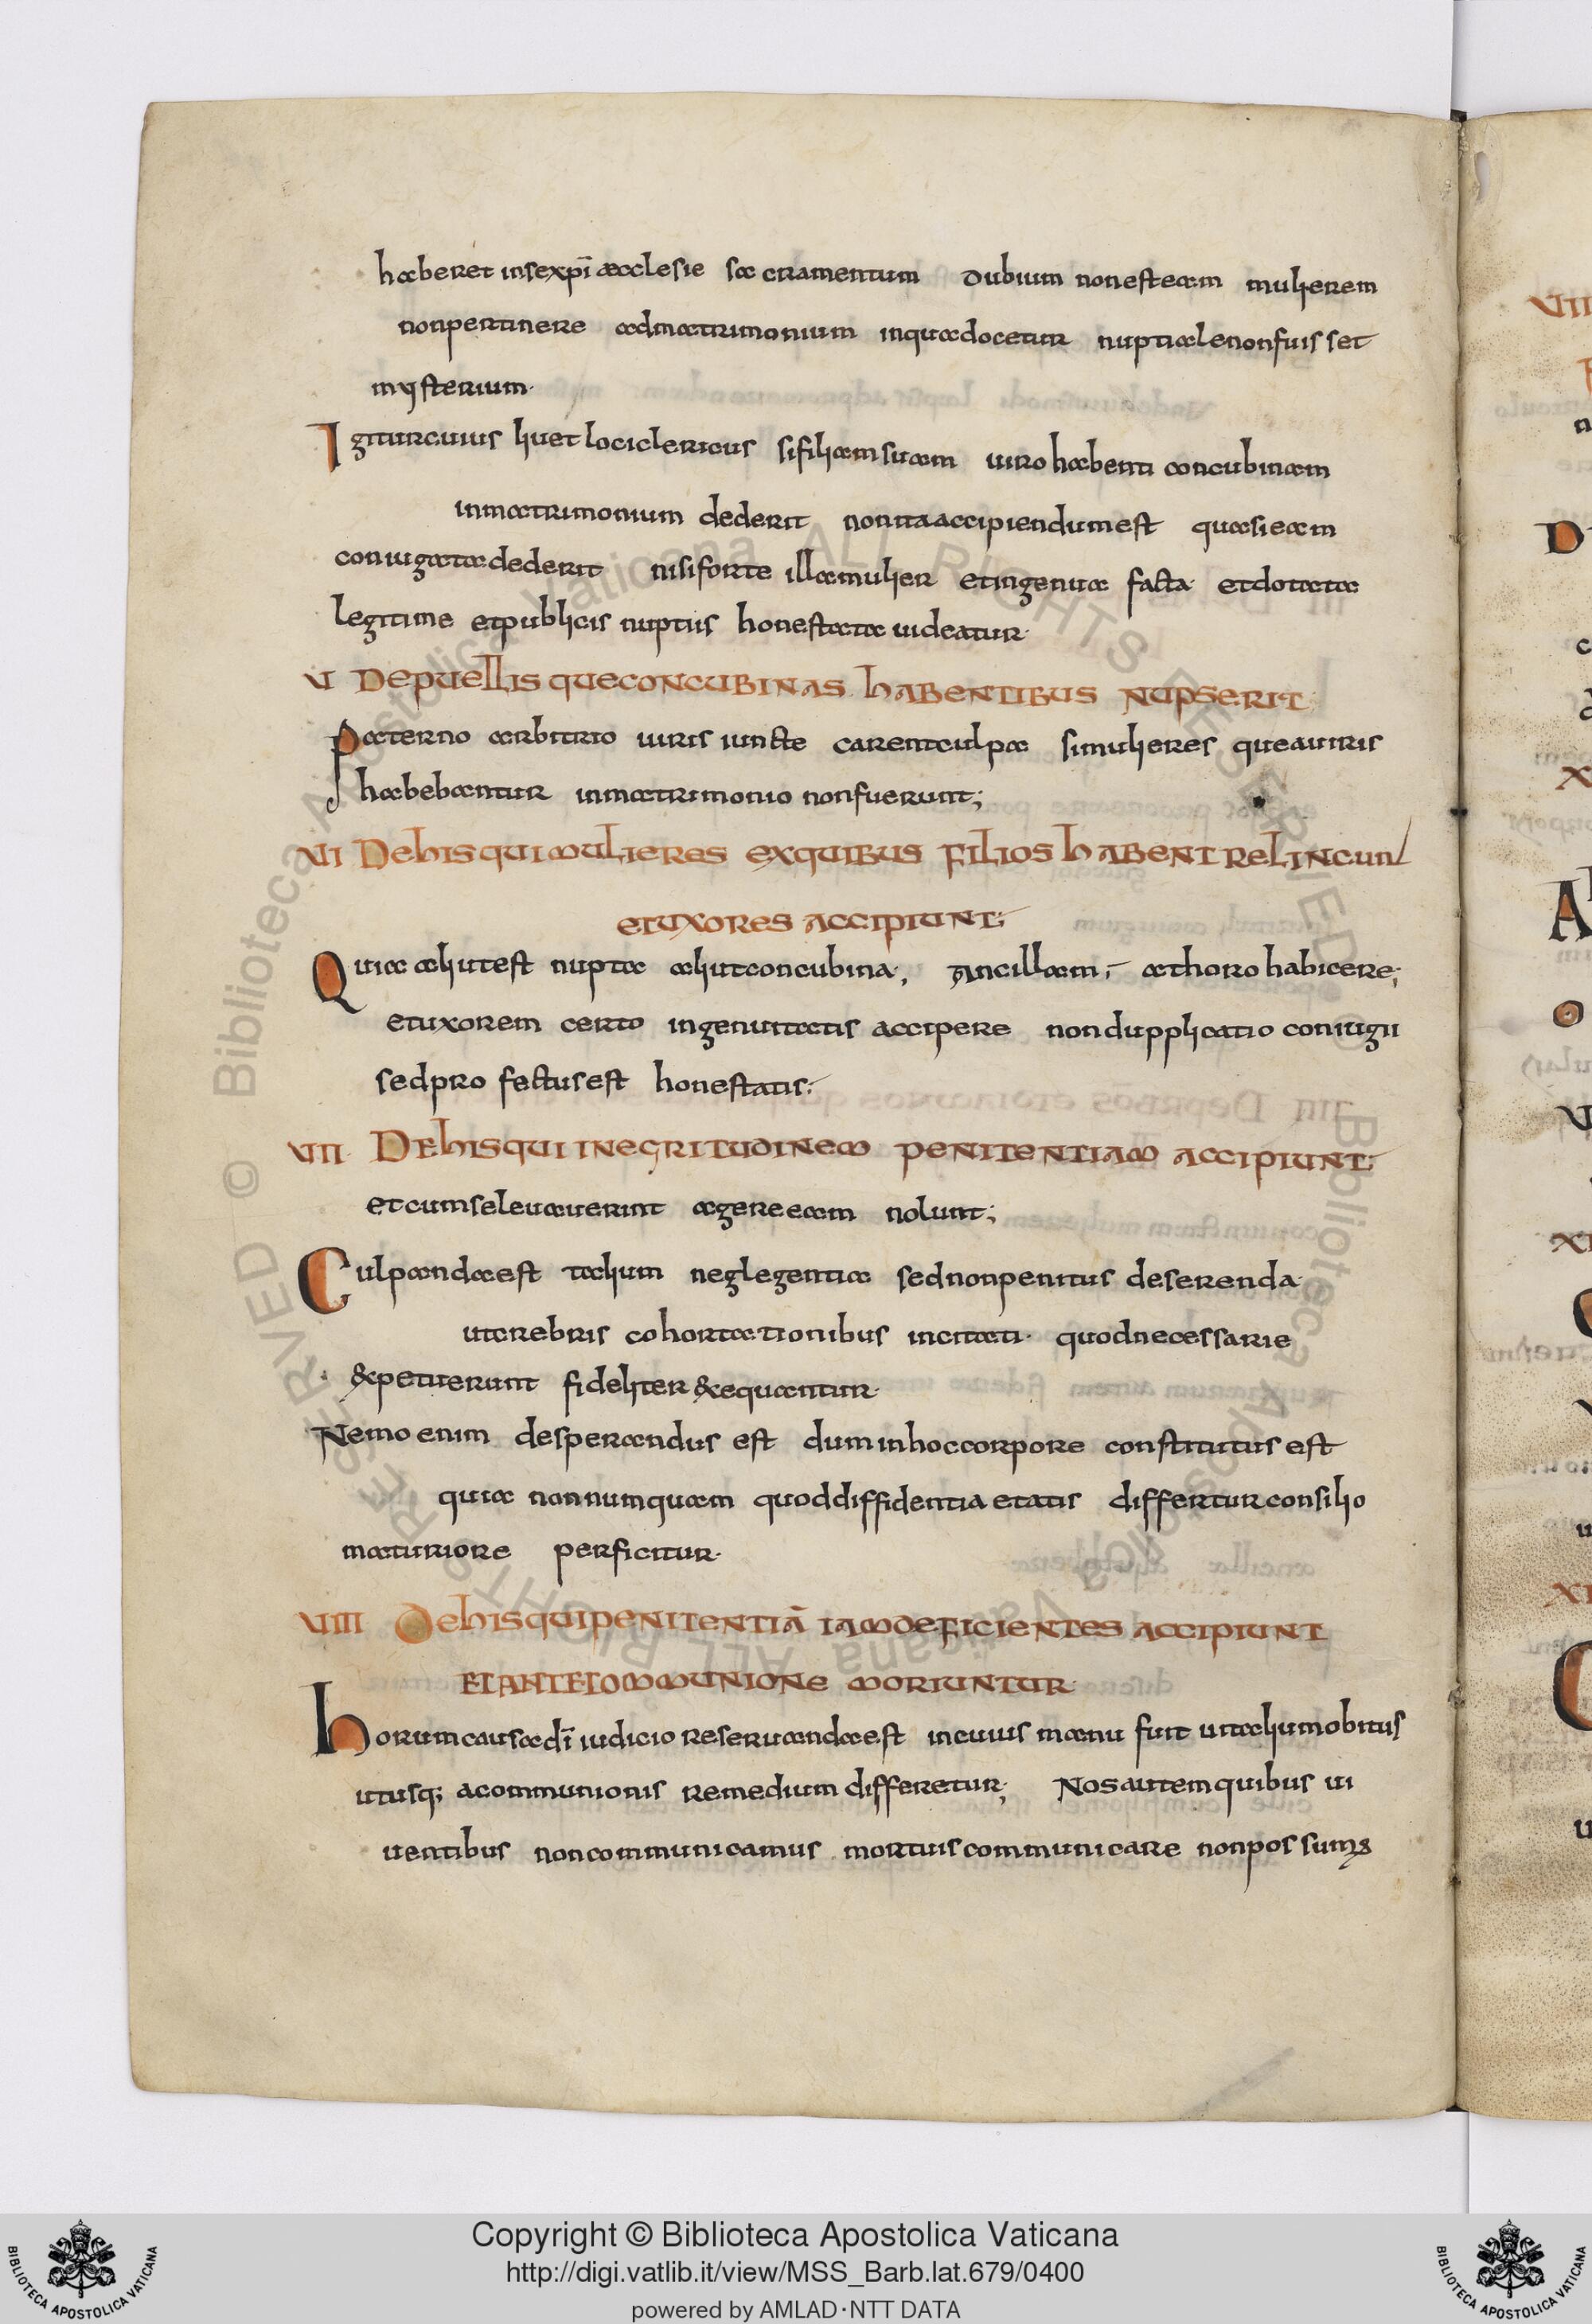 haberet inse xp̄i aecclesie sacramentum dubium non est eam mulierem
non pertinere ad matrimonium in qua docetur nuptiale non fuisset
mysterium·
Igitur cuius livet loci clericus si filiam suam viro habenti concubinam
in matrimonium dederit non ita accipiendum est quasi eam
coniugata dederit nisi forte illa mulier et ingenua facta· et dotata
legitime et publicis nuptiis honestata videatur·
VI De puellis que concubinas habentibus nupserit·
Paterno arbitrio viris iuncte carent culpa si mulieres que a viris
habebantur in matrimonio non fuerunt;
VII De his qui mulieres ex quibus filios habent relincunt
et uxores accipiunt;
Quia aliut est nupta aliut concubina, Ancillam; a thoro habicere;
et uxorem certo ingenuitatis accipere non dupplicatio coniugii
sed profectus est honestatis;
VII· De his qui in egritudinem penitentiam accipiunt;
et cum se levaverint agere eam nolunt;
Culpanda est talium neglegentia sed non penitus deserenda·
ut crebris cohortationibus incitati· quod necessarie
expetiverunt fideliter exequantur·
Nemo enim desperandus est dum in hoc corpore constitutus est
quia nonnumquam quod diffidentia etatis differtur consilio
maturiore perficitur·
VIII De his qui penitentiā iam deficientes accipiunt
et ante communione moriuntur·
Horum causa dī iudicio reservanda est in cuius manu fuit ut talium obitus
utusq; a communionis remedium differetur; Nos autem quibus vi
ventibus non communicamus mortuis communicare non possumus
Copyright © Biblioteca Apostolica Vaticana
http://digi.vatlib.it/view/MSS_Barb.lat.679/0400
powered by AMLAD·NTT DATA
BIBLIOTECA APOSTOLICA VATICANA
BIBLIOTECA APOSTOLICA VATICANA